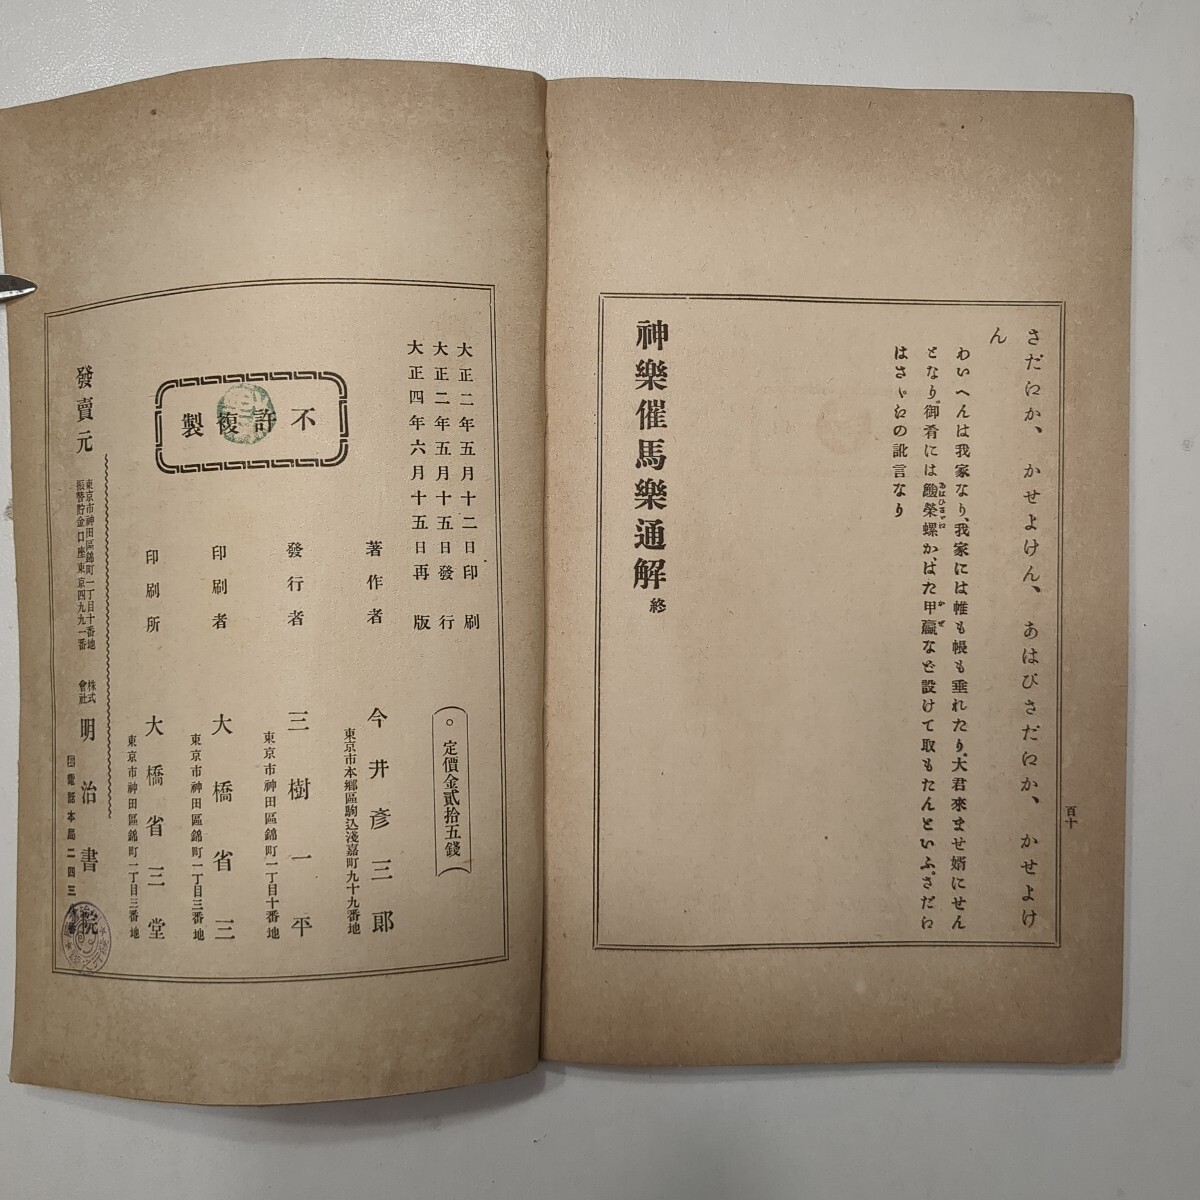 さだにか、かせよけん、あはびさだにか、かせよけ
ん
わいへんは我家なり、我家には帷も帳も垂れたり。大君來ませ婿にせん
となり。御肴には鰒榮螺か、はた甲蠃など設けて取もたんといふ。さだに
はさゞえの訛言なり
神樂催馬樂通解 終
百十
大正二年五月十二日印刷
大正二年五月十五日發行
大正四年六月十五日再版
定價金貳拾五錢
不許複製
著作者 今井彦三郎
東京市本鄕區駒込淺嘉町九十九番地
發行者 三樹一平
東京市神田區錦町一丁目十番地
印刷者 大橋省三
東京市神田區錦町一丁目三番地
印刷所 大橋省三堂
東京市神田區錦町一丁目三番地
發賣元
東京市神田區錦町一丁目十番地
振替貯金口座東京四九九一番
株式會社 明治書院
電話本局二四三